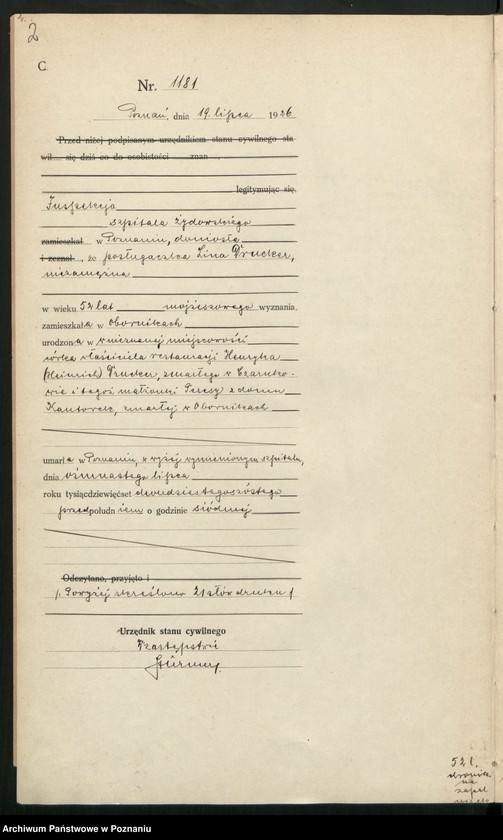 2
C
Nr. 1181
Poznań, dnia 19 lipca 1926
Przed niżej podpisanym urzędnikiem stanu cywilnego sta
wil się dziś co do osobistości znan
legitymując się.
Inspekcja
szpitala żydowskiego
zamieszkał w Poznaniu, doniosła
i zeznał, że posługaczka Lina Prucker,
niezamężna
w wieku 52 lat mojżeszowego wyznania
zamieszkała w Obornikach
urodzona w nieznanej miejscowości
córka właściciela restauracji Henryka
(Heinrich) Prucker, zmarłego w Czarnko-
wie i tegoż małżonki Teresy z domu
Kantorek, zmarłej w Obornikach
umarła w Poznaniu, w wyżej wymienionym szpitalu,
dnia ośmnastego lipca
roku tysiącdziewięćset dwudziestegoszóstego
przedpołudniem o godzinie siódmej
Odczytano, przyjęto i
Powyżej skreślono 21 słów druku
Urzędnik stanu cywilnego
W zastępstwie
521.
Archiwum Państwowe w Poznaniu